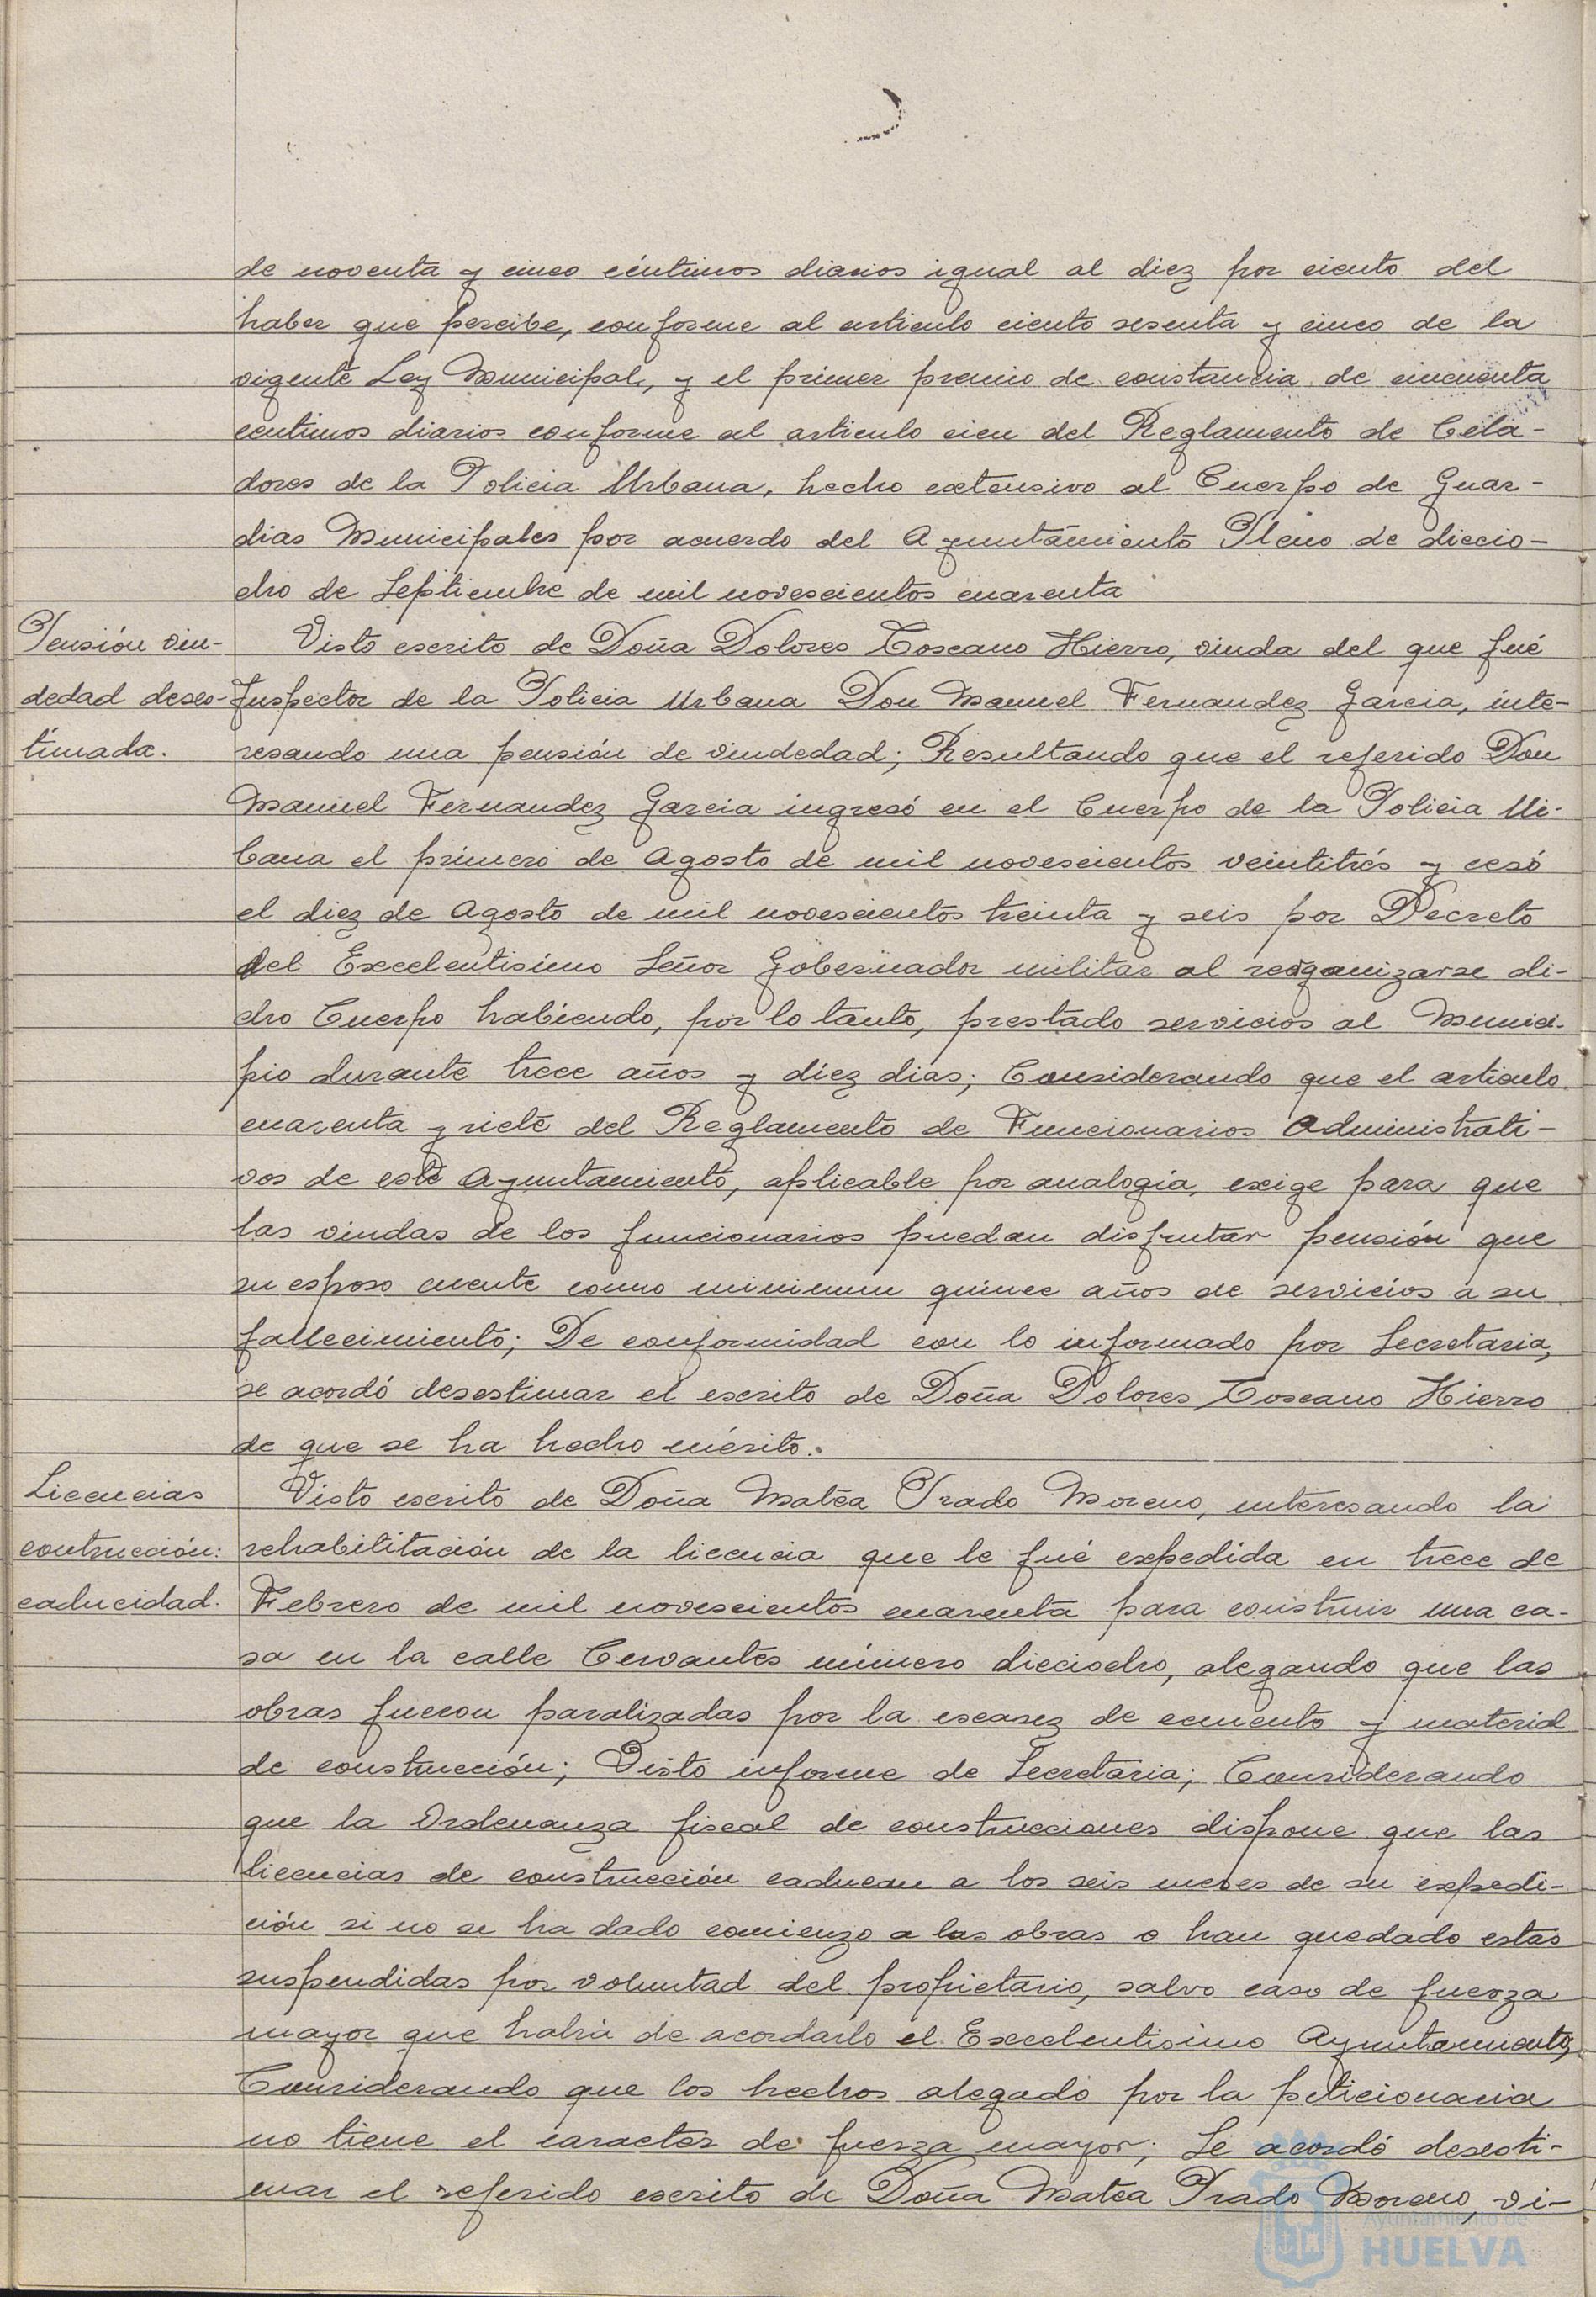 de noventa y cinco céntimos diarios igual al diez por ciento del
haber que percibe, conforme al articulo ciento sesenta y cinco de la
vigente Ley Municipal, y el primer premio de constancia de cincuenta
centimos diarios conforme al articulo cien del Reglamento de Cela-
dores de la Policia Urbana, hecho extensivo al Cuerpo de Guar-
dias Municipales por acuerdo del Ayuntamiento Pleno de diecio-
cho de Septiembre de mil novescientos cuarenta
Pensión viu-
dedad deses-
timada.
Visto escrito de Doña Dolores Toscano Hierro, viuda del que fué
Inspector de la Policia Urbana Don Manuel Fernandez Garcia, inte-
resando una pensión de viudedad; Resultando que el referido Don
Manuel Fernandez Garcia ingresó en el Cuerpo de la Policia Ur-
bana el primero de Agosto de mil novescientos veintitrés y cesó
el diez de Agosto de mil novescientos treinta y seis por Decreto
del Excelentisimo Señor Gobernador militar al reorganizarse di-
cho Cuerpo habiendo, por lo tanto, prestado servicios al Munici-
pio durante trece años y diez dias; Considerando que el articulo
cuarenta y siete del Reglamento de Funcionarios Administrati-
vos de este Ayuntamiento, aplicable por analogía, exige para que
las viudas de los funcionarios puedan disfrutar pensión que
su esposo cuente como minimum quince años de servicios a su
fallecimiento; De conformidad con lo informado por Secretaria,
se acordó desestimar el escrito de Doña Dolores Toscano Hierro
de que se ha hecho mérito.
Licencias
contrucción:
caducidad.
Visto escrito de Doña Matéa Prado Moreno, interesando la
rehabilitación de la licencia que le fué expedida en trece de
Febrero de mil novescientos cuarenta para construir una ca-
sa en la calle Cervantes número dieciocho, alegando que las
obras fueron paralizadas por la escasez de cemento y material
de construcción; Visto informe de Secretaria; Considerando
que la Ordenanza fiscal de construcciones dispone que las
licencias de construcción caducan a los seis meses de su expedi-
ción si no se ha dado comienzo a las obras o han quedado estas
suspendidas por voluntad del propietario, salvo caso de fuerza
mayor que habrá de acordarlo el Excelentisimo Ayuntamiento;
Considerando que los hechos alegado por la peticionaria
no tiene el caracter de fuerza mayor; Se acordó desesti-
mar el referido escrito de Doña Matea Prado Moreno, vi-
Ayuntamiento de
HUELVA